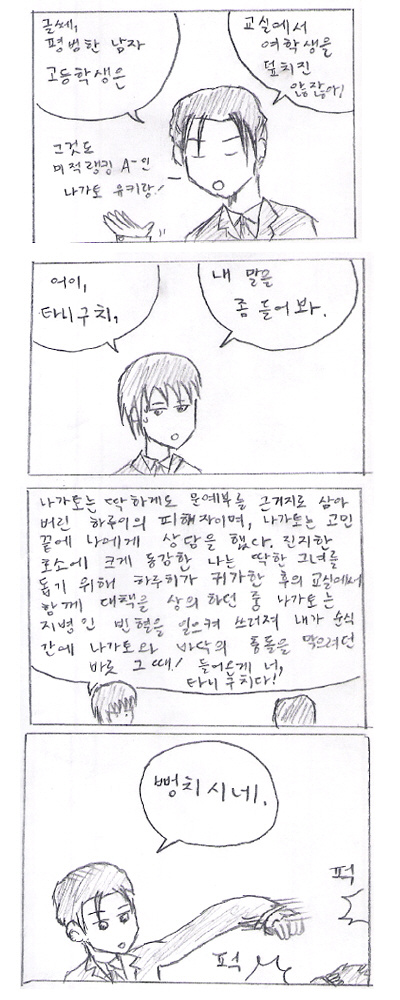 글쎄,
평범한 남자
고등학생은
교실에서
여학생을
덮치진
않잖아!
그것도
미적랭킹 A-인
나가토 유키랑!
어이,
타니구치,
내 말을
좀 들어봐.
나가토는 딱하게도 문예부를 근거지로 삼아
버린 하루히의 피해자이며, 나가토는 고민
끝에 나에게 상담을 했다. 진지한
호소에 크게 동감한 나는 딱한 그녀를
돕기 위해 하루히가 귀가한 후의 교실에서
함께 대책을 상의 하던 중 나가토는
지병인 빈혈을 일으켜 쓰러져 내가 순식
간에 나가토와 바닥의 충돌을 막으려던
바로 그 때! 들어온게 너,
타니구치다!
뻥치시네.
퍽
퍽